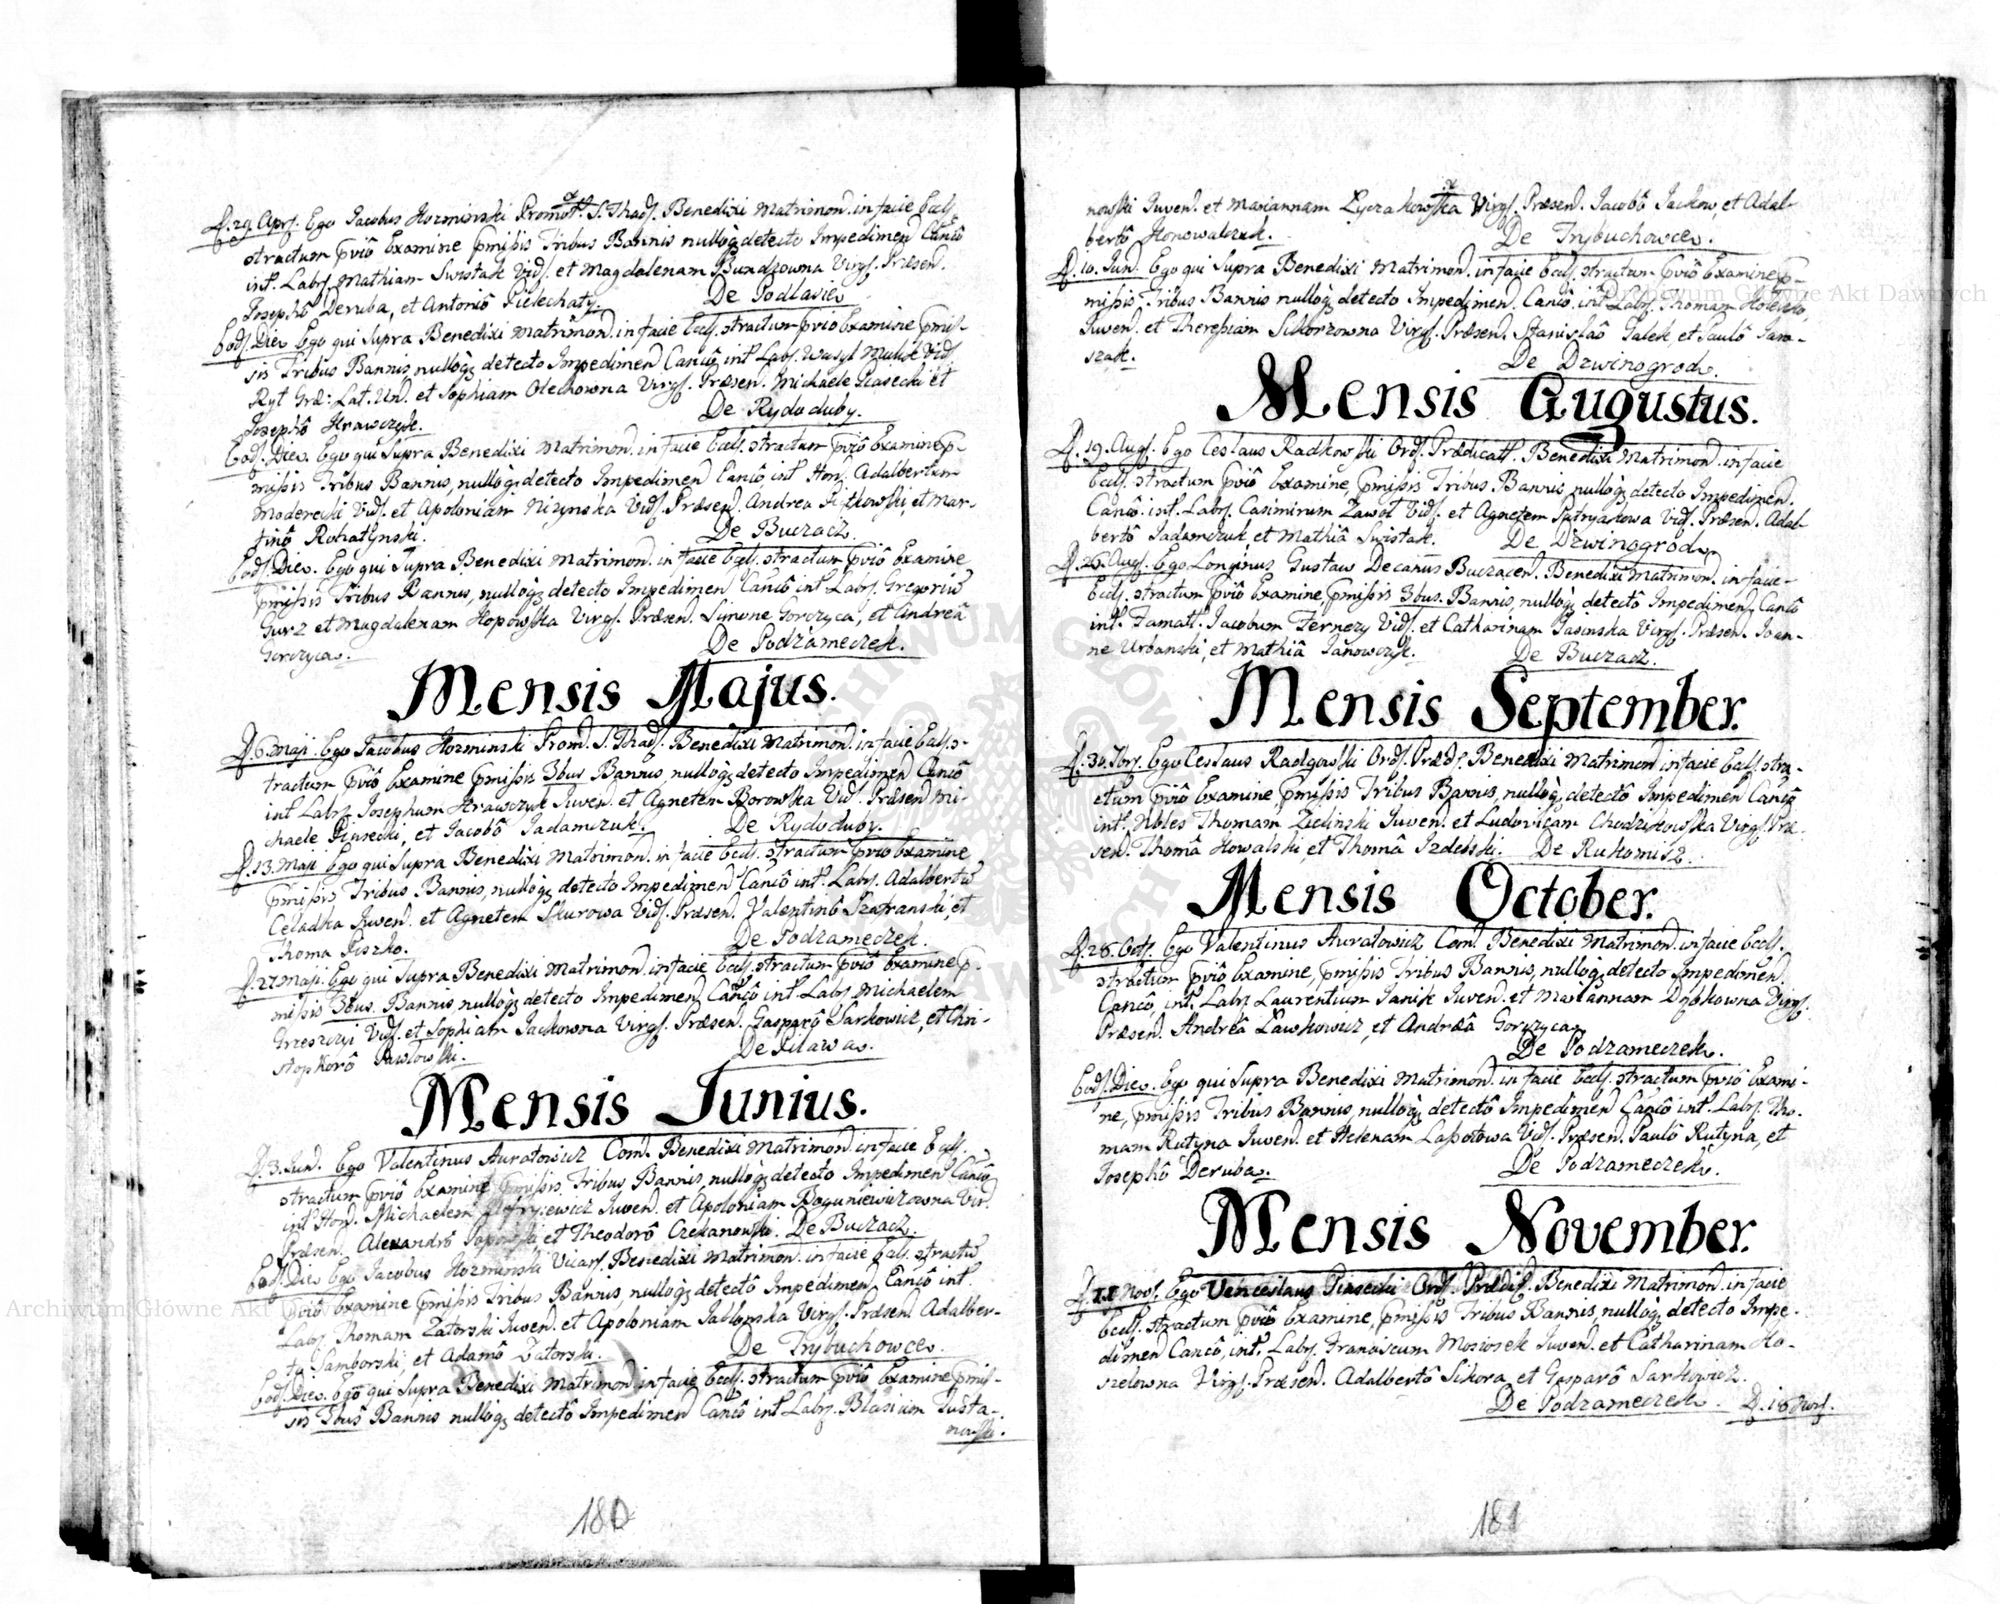 D. 29 Apr. Ego Jacobus Kozminski Promot. S. Thad. Benedixi Matrimon. in facie Eccl.
stractum pviô Examine pmissis Tribus Bannis nullôq detecto Impedimen Canoô
int. Labr. Mathiam Swistak Vid. et Magdalenam Bundzowna Virg. Præsen.
Josephô Deruba, et Antoniô Pielechaty. De Podlasie
Eod. Die Ego qui Supra Benedixi Matrimon. in facie Eccl. stractum pviô Examine pmis-
sis Tribus Bannis nullôq detecto Impedimen Canoô int. Labr. Wasyl Mulik Vid.
Ryt Græ: Lat. Un. et Sophiam Olechowna Virg. Præsen. Michaele Piasecki et
Josephô Krawczyk. De Rydoduby.
Eod. Die Ego qui Supra Benedixi Matrimon. in facie Eccl. stractum pviô Examine p-
missis Tribus Bannis, nullôq detecto Impedimen Canoô, int. Hon. Adalbertum
Moderecki Vid. et Apoloniam Nizynska Vid. Præsen. Andrea Piątkowski, et Mar-
tinô Rohatynski. De Buczacz.
Eod. Die. Ego qui Supra Benedixi Matrimon. in facie Eccl. stractum pviô Examine
pmissis Tribus Bannis, nullôq detecto Impedimen Canoô int. Labr. Gregoriu
Gurz et Magdalenam Kopowska Virg. Præsen. Simone Gorczyca, et Andreâ
Gorczyca. De Podzameczek.
Mensis Majus.
D. 6 Maji. Ego Jacobus Kozminski Prom. S. Thad. Benedixi Matrimon. in facie Eccl. s-
tractum pviô Examine pmissis 3bus Bannis, nullôq detecto Impedimen Canoô
int Labr. Josephum Krawczyk Juven. et Agnetem Borowska Vid. Præsen Mi-
chaele Piasecki, et Jacobô Jadamczuk. De Rydoduby.
D. 13. Maji Ego qui Supra Benedixi Matrimon. in facie Eccl. stractum pviô Examine
pmissis Tribus Bannis, nullôq detecto Impedimen Canoô int. Labr. Adalbertu
Celadka Juven. et Agnetem Skurowa Vid. Præsen. Valentinô Szafranski, et
Thoma Piszko. De Podzameczek.
D. 27 Maji. Ego qui Supra Benedixi Matrimon. in facie Eccl. stractum pviô Examine p-
missis 3bus. Bannis, nullôq detecto Impedimen Canoô int. Labr. Michaelem
Grzeszczyi Vid. et Sophiam Jackowna Virg. Præsen. Gasparô Sarkowicz, et Chri-
stophorô Pawlowski. De Pilawa.
Mensis Junius.
D. 3. Jun. Ego Valentinus Auratowicz Com. Benedixi Matrimon. in facie Eccl.
stractum pviô Examine pmissis Tribus Bannis, nullôq detecto Impedimen Canoô
int Hon. Michaelem Juven. et Apoloniam Boguniewiczowna Vir.
Præsen. Alexandrô et Theodorô Czekanowski. De Buczacz.
Eod. Die Ego Jacobus Kozminski Vicar. Benedixi Matrimon. in facie Eccl. stractu
pviô Examine pmissis Tribus Bannis, nullôq detectô Impedimen. Canoô int.
Labr. Thomam Zatorski Juven. et Apoloniam Jablonska Virg. Præsen. Adalber-
to Samborski, et Adamô Zatorski. De Trybuchowce.
Eod. Die. Ego qui Supra Benedixi Matrimon. in facie Eccl. stractum pviô Examine pmis-
sis 3bus Bannis nullôq detectô Impedimen Canoô int Labr. Blasium Susta-
nowski.
180
nowski Juven. et Mariannam Łyczakowska Virg. Præsen. Jacobô Jackow, et Adal-
bertô Konowalczuk. De Trybuchowce.
D. 10. Jun. Ego qui Supra Benedixi Matrimon. in facie Eccl. stractum pviô Examine p-
missis Tribus Bannis nullôq detecto Impedimen. Canoô, int. Labr. Thomam Kolenko,
Juven. et Theresiam Sikorzowna Virg. Præsen. Stanislaô Jalek et Paulô Jara-
szak. De Dzwinogrod.
Mensis Augustus.
D. 19. Aug. Ego Ceslaus Radkowski Ord. Prædicatt. Benedixi Matrimon. in facie
Eccl. stractum pviô Examine pmissis Tribus Bannis nullôq detecto Impedimen.
Canoô. int. Labr. Casimirum Zawoł Vid. et Agnetem Patryakowa Vid. Præsen. Adal-
bertô Jadamczuk et Mathiâ Swistak. De Dzwinogrod
D. 26. Aug. Ego Longinus Gustaw Decanus Buczacen. Benedixi Matrimon. in facie
Eccl. stractum pviô Examine, pmissis 3bus. Bannis, nullôq detectô Impedimen. Canoô
int. Famatt. Jacobum Ternezy Vid. et Catharinam Jasinska Virg. Præsen. Joan-
ne Urbanski, et Mathiâ Janowczyk. De Buczacz.
Mensis September.
D. 30. 7br. Ego Ceslaus Radgoski Ord. Præd. Benedixi Matrimon in facie Eccl. stra-
ctum pviô Examine, pmissis Tribus Bannis, nullôq detectô Impedimen Canoô
int. Nbles Thomam Zielinski Juven. et Ludovicam Chodzikowska Virg. Præ-
sen. Thomâ Kowalski, et Thomâ Izdebski. De Rukomisz.
Mensis October.
D. 28. Oct. Ego Valentinus Auratowicz Com. Benedixi Matrimon. in facie Eccl.
stractum pviô Examine, pmissis Tribus Bannis, nullôq detectô Impedimen.
Canoô, int. Labr Laurentium Janik Juven. et Mariannam Dębkowna Virg.
Præsen. Andreâ Ławkowicz, et Andreâ Gorczyca.
De Podzameczek.
Eod. Die. Ego qui Supra Benedixi Matrimon. in facie Eccl. stractum pviô Exami-
ne, pmissis Tribus Bannis, nullôq detectô Impedimen Canoô int. Labr. Tho-
mam Rutyna Juven. et Helenam Łapotowa Vid. Præsen. Paulô Rutyna, et
Josephô Deruba. De Podzameczek.
Mensis November.
D. 11 Nov. Ego Venceslaus Piasecki Ord. Prædic. Benedixi Matrimon. in facie
Eccl. stractum pviô Examine, pmissis Tribus Bannis, nullôq detecto Impe-
dimen Canoô, int. Labr. Franciscum Mosiosek Juven. et Catharinam Ko-
szelowna Virg. Præsen. Adalbertô Sikora et Gasparô Sarkowicz.
De Podzameczek. D. 18 Nov.
181
Archiwum Główne Akt Dawnych